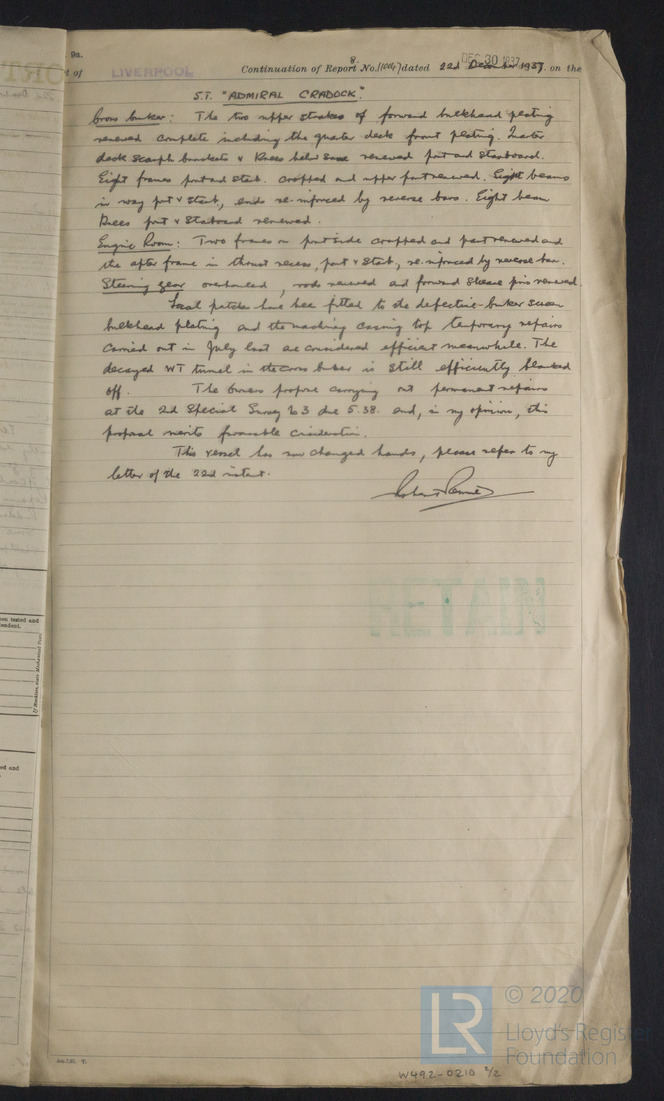 9a.
8.
DEC 30 1937
t of LIVERPOOL Continuation of Report No. dated 22d December 1937. on the
S.T. "ADMIRAL CRADOCK".
Cross bunker: The two upper strakes of forward bulkhead plating
renewed complete including the quarter deck front plating. Quarter
deck scarph brackets & knees below same renewed port and starboard.
Eight frames port and starb. cropped and upper part renewed. Eight beams
in way port & starb, ends re-inforced by reverse bars. Eight beam
knees port & starboard renewed.
Engine Room: Two frames on port side cropped and part renewed and
the after frame in thrust recess, port & starb, re-inforced by reverse bar.
Steering gear overhauled, rods renewed and forward sheave pins renewed.
Local patches have been fitted to the defective bunker screen
bulkhead plating and the machinery casing top temporary repairs
carried out in July last are considered efficient meanwhile. The
decayed WT tunnel in the cross bunker is still efficiently blanked
off. The owners propose carrying out permanent repairs
at the 2d Special Survey No 3 due 5.38. and, in my opinion, this
proposal merits favourable consideration.
This vessel has now changed hands, please refer to my
letter of the 22d instant.
en tested and
endent.
ed and
© 2020
LR
Lloyd's Register
Foundation
W492-0210 2/2